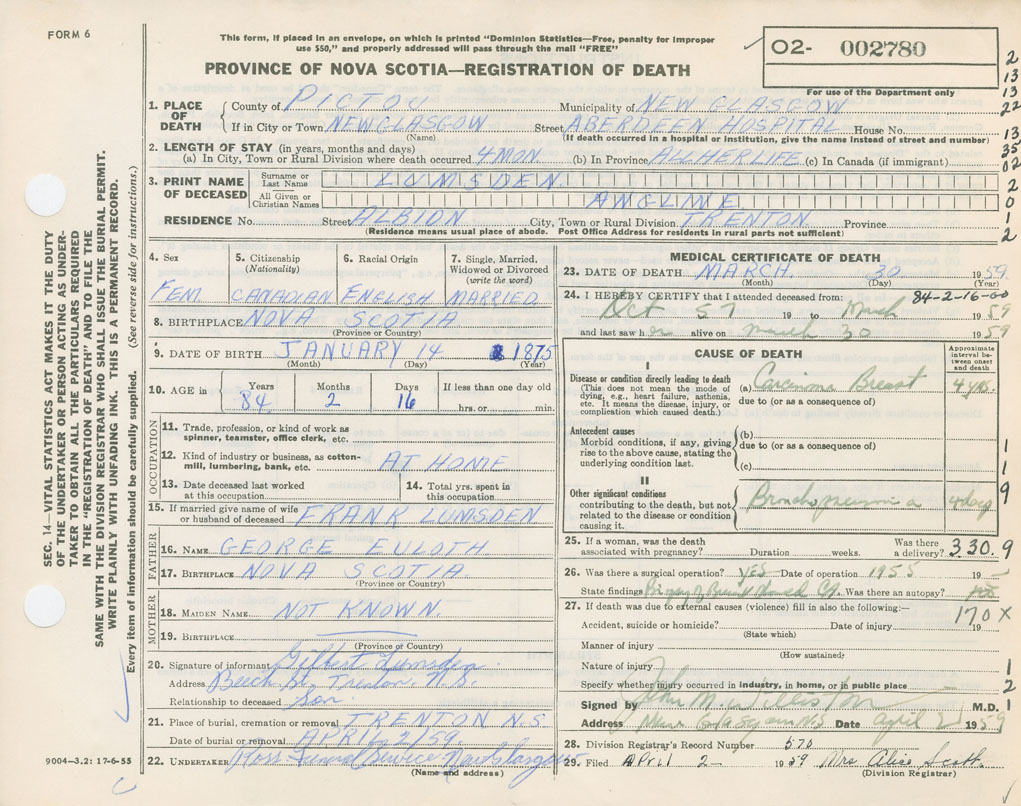 FORM 6
This form, if placed in an envelope, on which is printed "Dominion Statistics—Free, penalty for improper
use $50," and properly addressed will pass through the mail "FREE"
PROVINCE OF NOVA SCOTIA—REGISTRATION OF DEATH
02- 002780
For use of the Department only
SEC. 14—VITAL STATISTICS ACT MAKES IT THE DUTY
OF THE UNDERTAKER OR PERSON ACTING AS UNDER-
TAKER TO OBTAIN ALL THE PARTICULARS REQUIRED
IN THE "REGISTRATION OF DEATH" AND TO FILE THE
SAME WITH THE DIVISION REGISTRAR WHO SHALL ISSUE THE BURIAL PERMIT.
WRITE PLAINLY WITH UNFADING INK. THIS IS A PERMANENT RECORD.
Every item of information should be carefully supplied. (See reverse side for instructions.)
1. PLACE OF DEATH
County of PICTOU Municipality of NEW GLASGOW
If in City or Town NEW GLASGOW Street ABERDEEN HOSPITAL House No.
(Name) (If death occurred in a hospital or institution, give the name instead of street and number)
2. LENGTH OF STAY (in years, months and days)
(a) In City, Town or Rural Division where death occurred 4 MON. (b) In Province ALL HER LIFE (c) In Canada (if immigrant)
3. PRINT NAME OF DECEASED
Surname or Last Name LUMSDEN
All Given or Christian Names ANGLINE
RESIDENCE No. Street ALBION City, Town or Rural Division TRENTON Province
(Residence means usual place of abode. Post Office Address for residents in rural parts not sufficient)
4. Sex FEM.
5. Citizenship (Nationality) CANADIAN
6. Racial Origin ENGLISH
7. Single, Married, Widowed or Divorced (write the word) MARRIED
8. BIRTHPLACE NOVA SCOTIA
(Province or Country)
9. DATE OF BIRTH JANUARY 14 1875
(Month) (Day) (Year)
10. AGE in Years 84 Months 2 Days 16 If less than one day old hrs. or min.
OCCUPATION
11. Trade, profession, or kind of work as spinner, teamster, office clerk, etc.
12. Kind of industry or business, as cotton-mill, lumbering, bank, etc. AT HOME
13. Date deceased last worked at this occupation
14. Total yrs. spent in this occupation
15. If married give name of wife or husband of deceased FRANK LUMSDEN
FATHER
16. NAME GEORGE EULOTH
17. BIRTHPLACE NOVA SCOTIA
(Province or Country)
MOTHER
18. MAIDEN NAME NOT KNOWN.
19. BIRTHPLACE
(Province or Country)
20. Signature of informant Gilbert Lumsden
Address Beech St. Trenton, N.S.
Relationship to deceased Son
21. Place of burial, cremation or removal TRENTON N.S.
Date of burial or removal APRIL 2/59
22. UNDERTAKER Ross Funeral Service New Glasgow
(Name and address)
9004—3.2: 17-6-55
MEDICAL CERTIFICATE OF DEATH
23. DATE OF DEATH MARCH 30 1959
(Month) (Day) (Year)
84-2-16-00
24. I HEREBY CERTIFY that I attended deceased from:
Oct 57 19 to March 1959
and last saw h er alive on March 30 1959
CAUSE OF DEATH
Approximate interval between onset and death
I
Disease or condition directly leading to death
(This does not mean the mode of dying, e.g., heart failure, asthenia, etc. It means the disease, injury, or complication which caused death.)
(a) Carcinoma Breast 4 yrs.
due to (or as a consequence of)
Antecedent causes
Morbid conditions, if any, giving rise to the above cause, stating the underlying condition last.
(b)
due to (or as a consequence of)
(c)
II
Other significant conditions contributing to the death, but not related to the disease or condition causing it.
Bronchopneumonia 4 days
25. If a woman, was the death associated with pregnancy? Duration weeks. Was there a delivery? 330.9
26. Was there a surgical operation? yes Date of operation 1955 19
State findings Was there an autopsy?
27. If death was due to external causes (violence) fill in also the following:—
170 X
Accident, suicide or homicide? Date of injury 19
(State which)
Manner of injury
(How sustained?)
Nature of injury
Specify whether injury occurred in industry, in home, or in public place
Signed by John M. Williston M.D.
Address N.S Date April 2 1959
28. Division Registrar's Record Number 570
29. Filed April 2- 1959 Mrs Alice Scott
(Division Registrar)
2
13
13
22
13
35
02
2
0
1
2
1
1
9
1
2
1